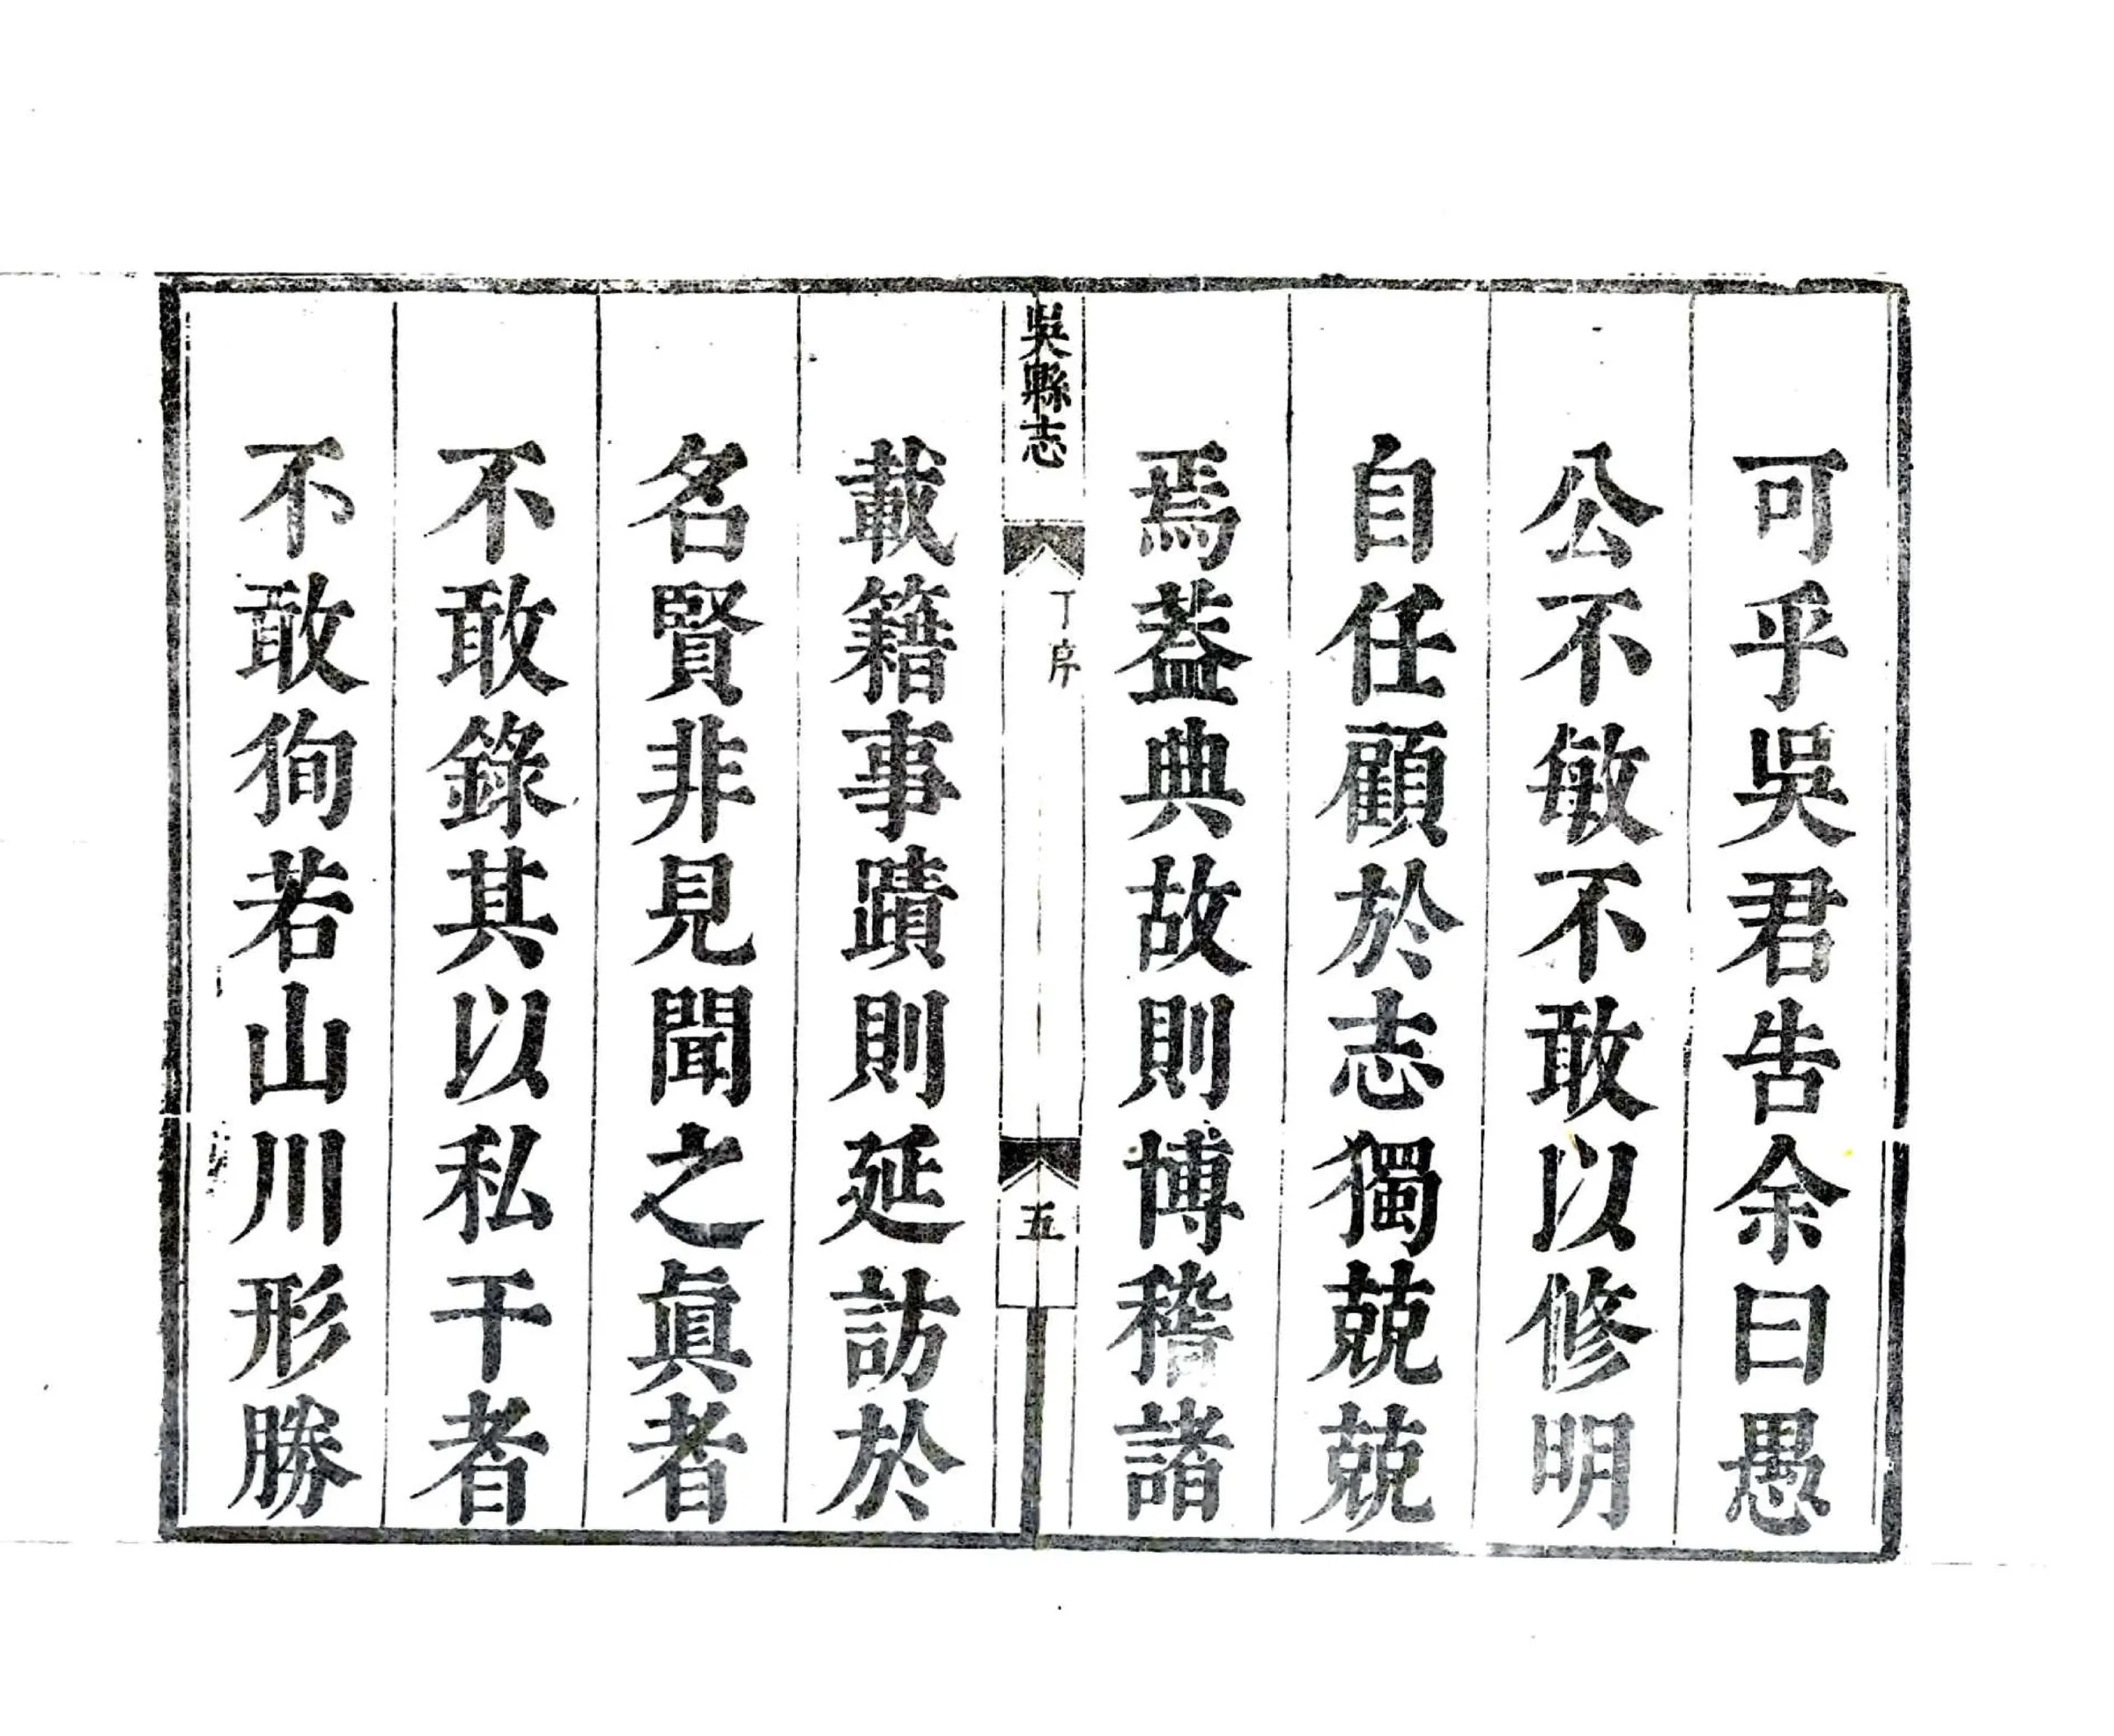 可乎吳君告余曰愚
公不敏不敢以修明
自任顧於志獨兢兢
焉葢典故則博稽諸
吳縣志
丁序
五
載籍事蹟則延訪於
名賢非見聞之眞者
不敢錄其以私干者
不敢狥若山川形勝